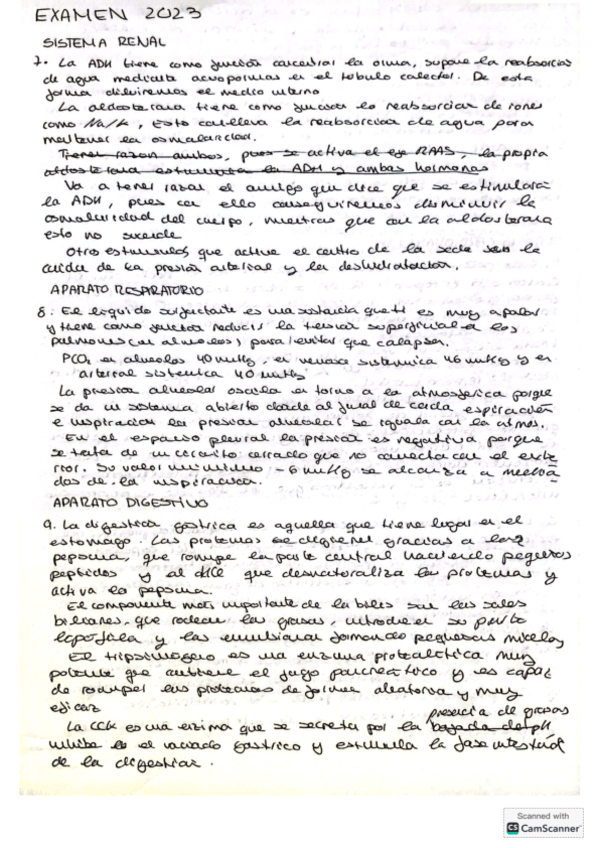 EXAMEN 2023
SISTEMA RENAL
7. La ADH tiene como función concentrar la orina, supone la reabsorción
de agua mediante acuoporinas en el túbulo colector. De esta
forma diluiremos el medio interno
La aldosterona tiene como función la reabsorción de iones
como Na/K, esto conlleva la reabsorción de agua para
mantener la osmolaridad.
Tienen razón ambos, pues se activa el eje RAAS, la propia
aldosterona estimula la ADH y ambas hormonas
Va a tener razón el amigo que dice que se estimulará
la ADH, pues con ello conseguiremos disminuir la
osmolaridad del cuerpo, mientras que con la aldosterona
esto no sucede
Otros estímulos que active el centro de la sede son la
caída de la presión arterial y la deshidratación.
APARATO RESPIRATORIO
8. El líquido surfactante es una sustancia que es muy apolar
y tiene como función reducir la tensión superficial en los
pulmones (en alveolos) para evitar que colapsen.
PCO2 en alveolos 40 mmHg, en venosa sistémica 46 mmHg y en
arterial sistémica 40 mmHg
La presión alveolar oscila en torno a la atmosférica porque
se da un sistema abierto donde al final de cada espiración
e inspiración la presión alveolar se iguala con la atmos.
En el espacio pleural la presión es negativa porque
se trata de un circuito cerrado que no conecta con el exte
rior. Su valor mínimo -6 mmHg se alcanza a media
dos de la inspiración.
APARATO DIGESTIVO
9. La digestión gástrica es aquella que tiene lugar en el
estómago. Las proteínas se digieren gracias a la
pepsina, que rompe la parte central haciendo pequeños
peptidos y al que desnaturaliza las proteínas y
activa la pepsina.
El componente más importante de la bilis son las sales
biliares, que rodean las grasas, introducen su parte
lipofila y las emulsionan formando pequeñas micelas
El tripsinógeno es una enzima proteolítica muy
potente que contiene el jugo pancreático y es capaz
de romper las proteínas de forma aleatoria y muy
eficaz
presencia de grasas
La CCK es una enzima que se secreta por la bajada del pH
inhibe el vaciado gástrico y estimula la fase intestinal
de la digestión.
Scanned with
CS CamScanner